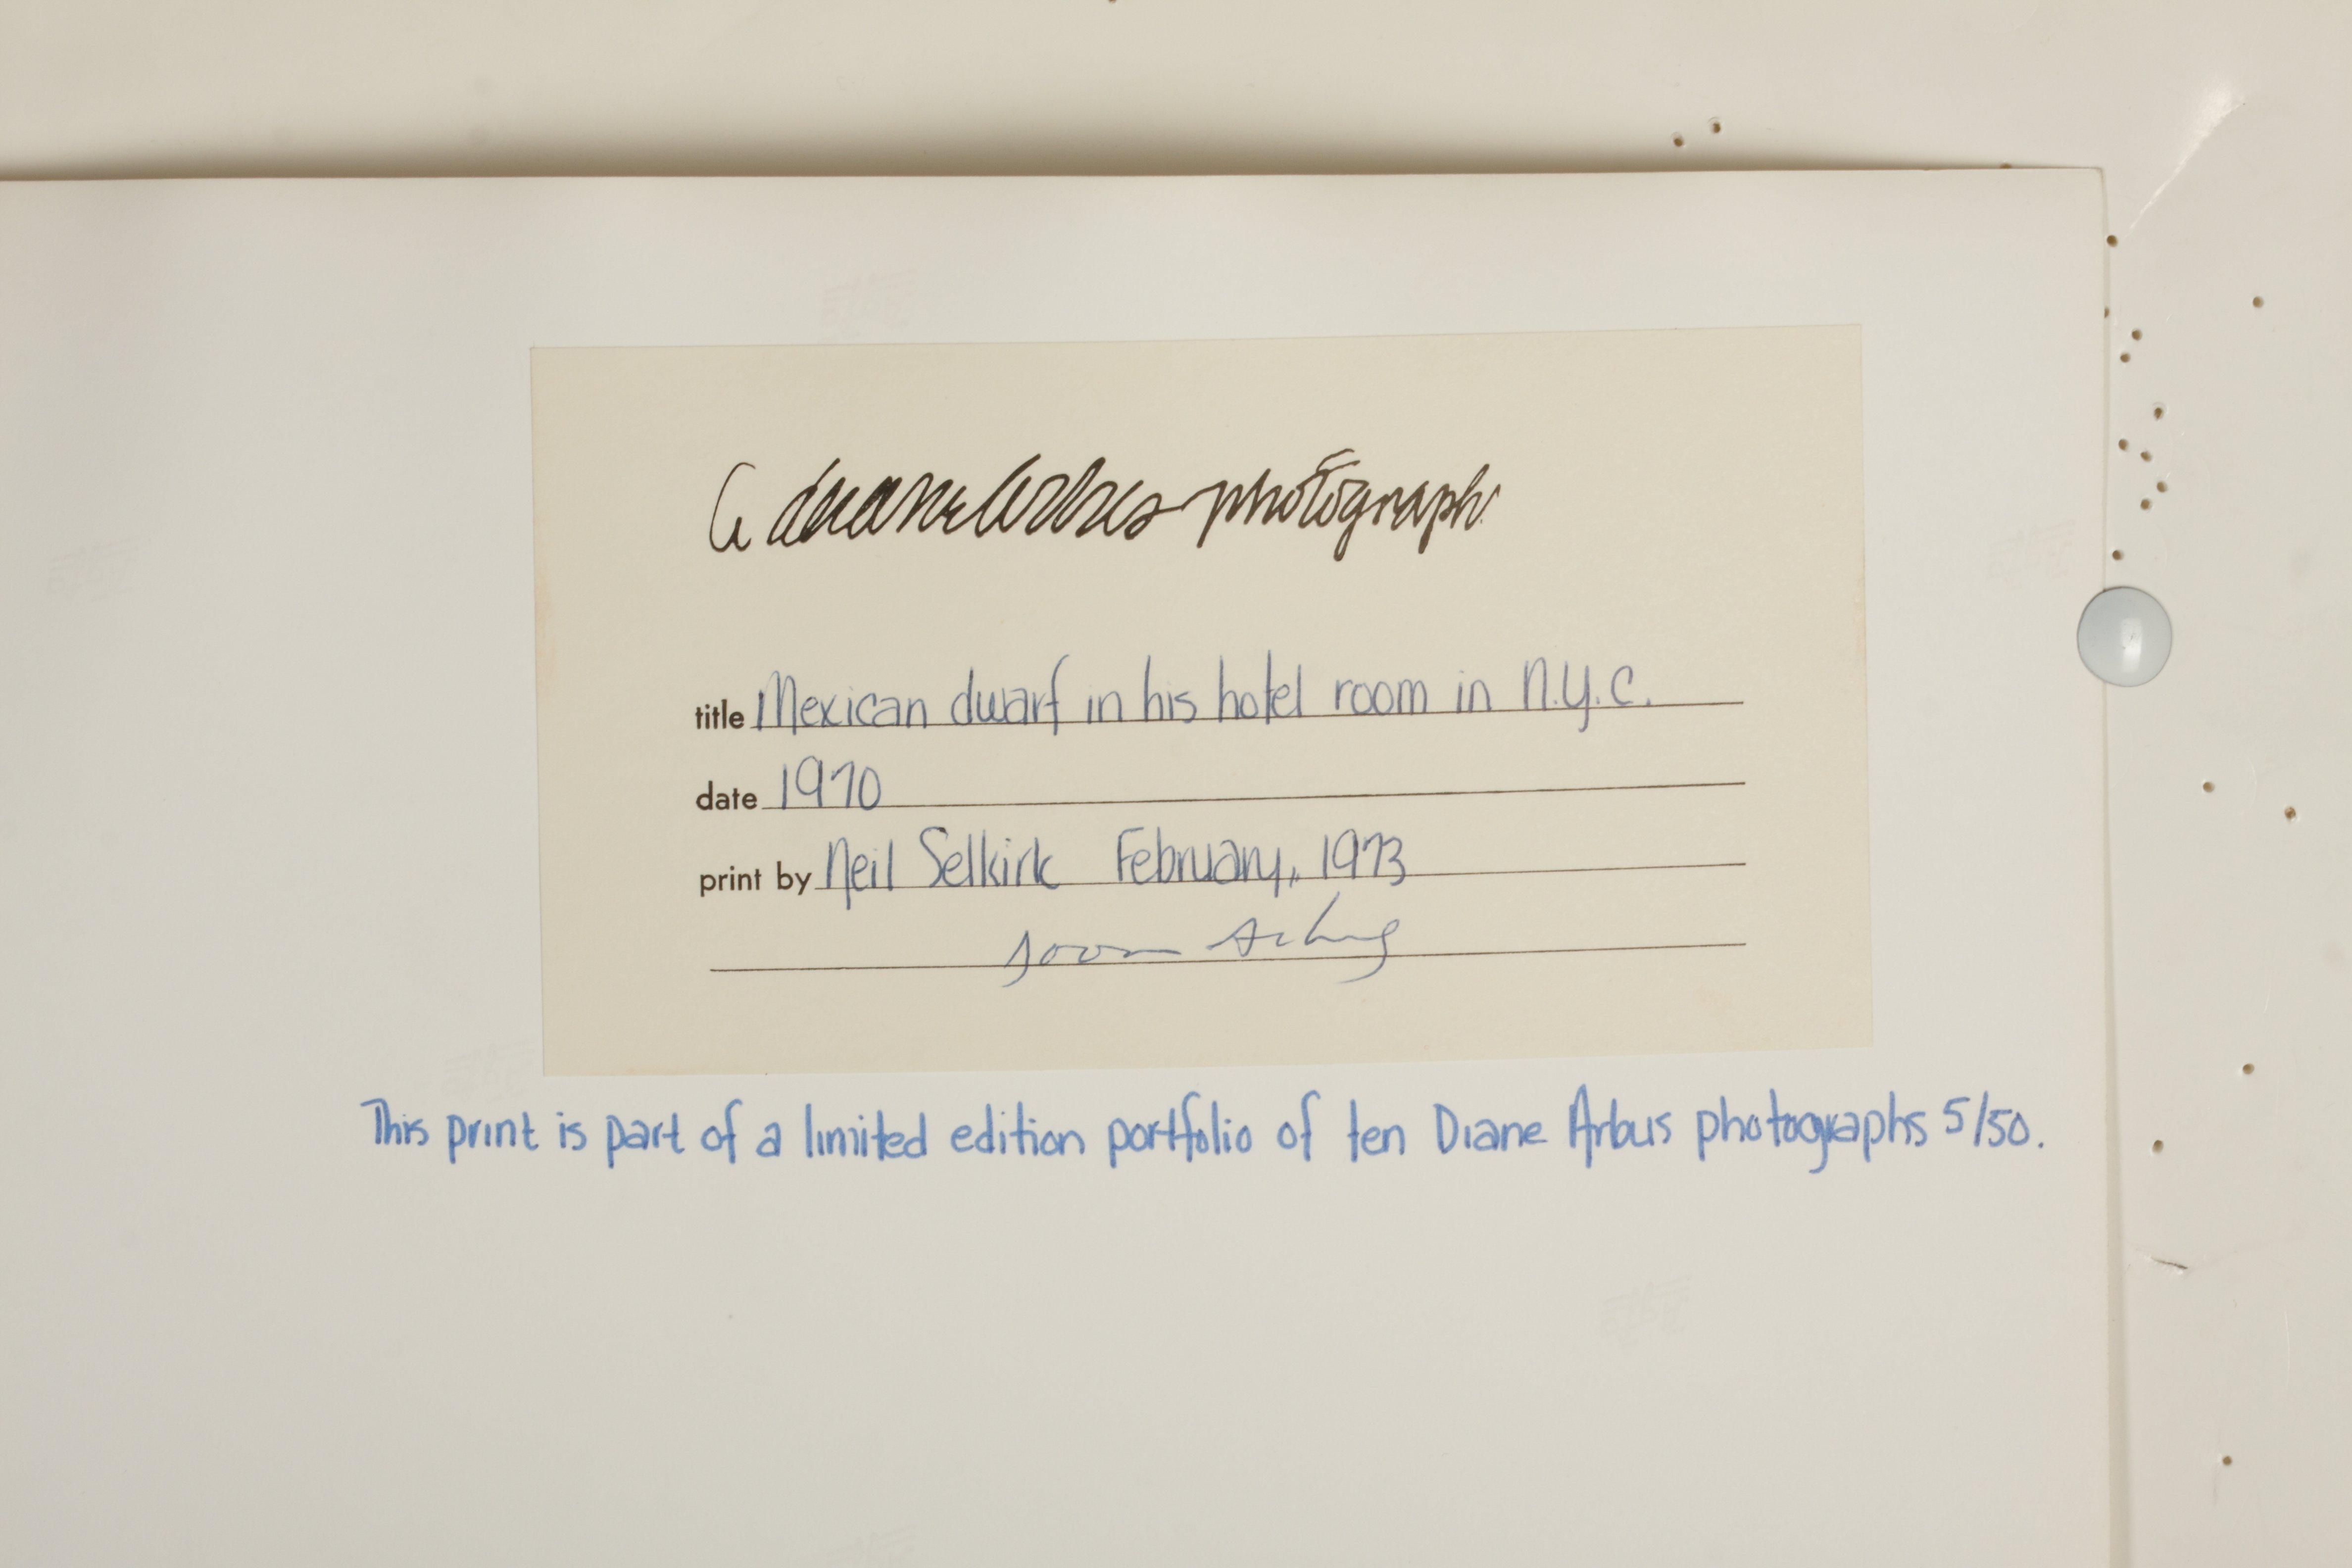 a diane arbus photograph
title Mexican dwarf in his hotel room in N.Y.C.
date 1970
print by Neil Selkirk February, 1973
doon arbus
This print is part of a limited edition portfolio of ten Diane Arbus photographs 5/50.